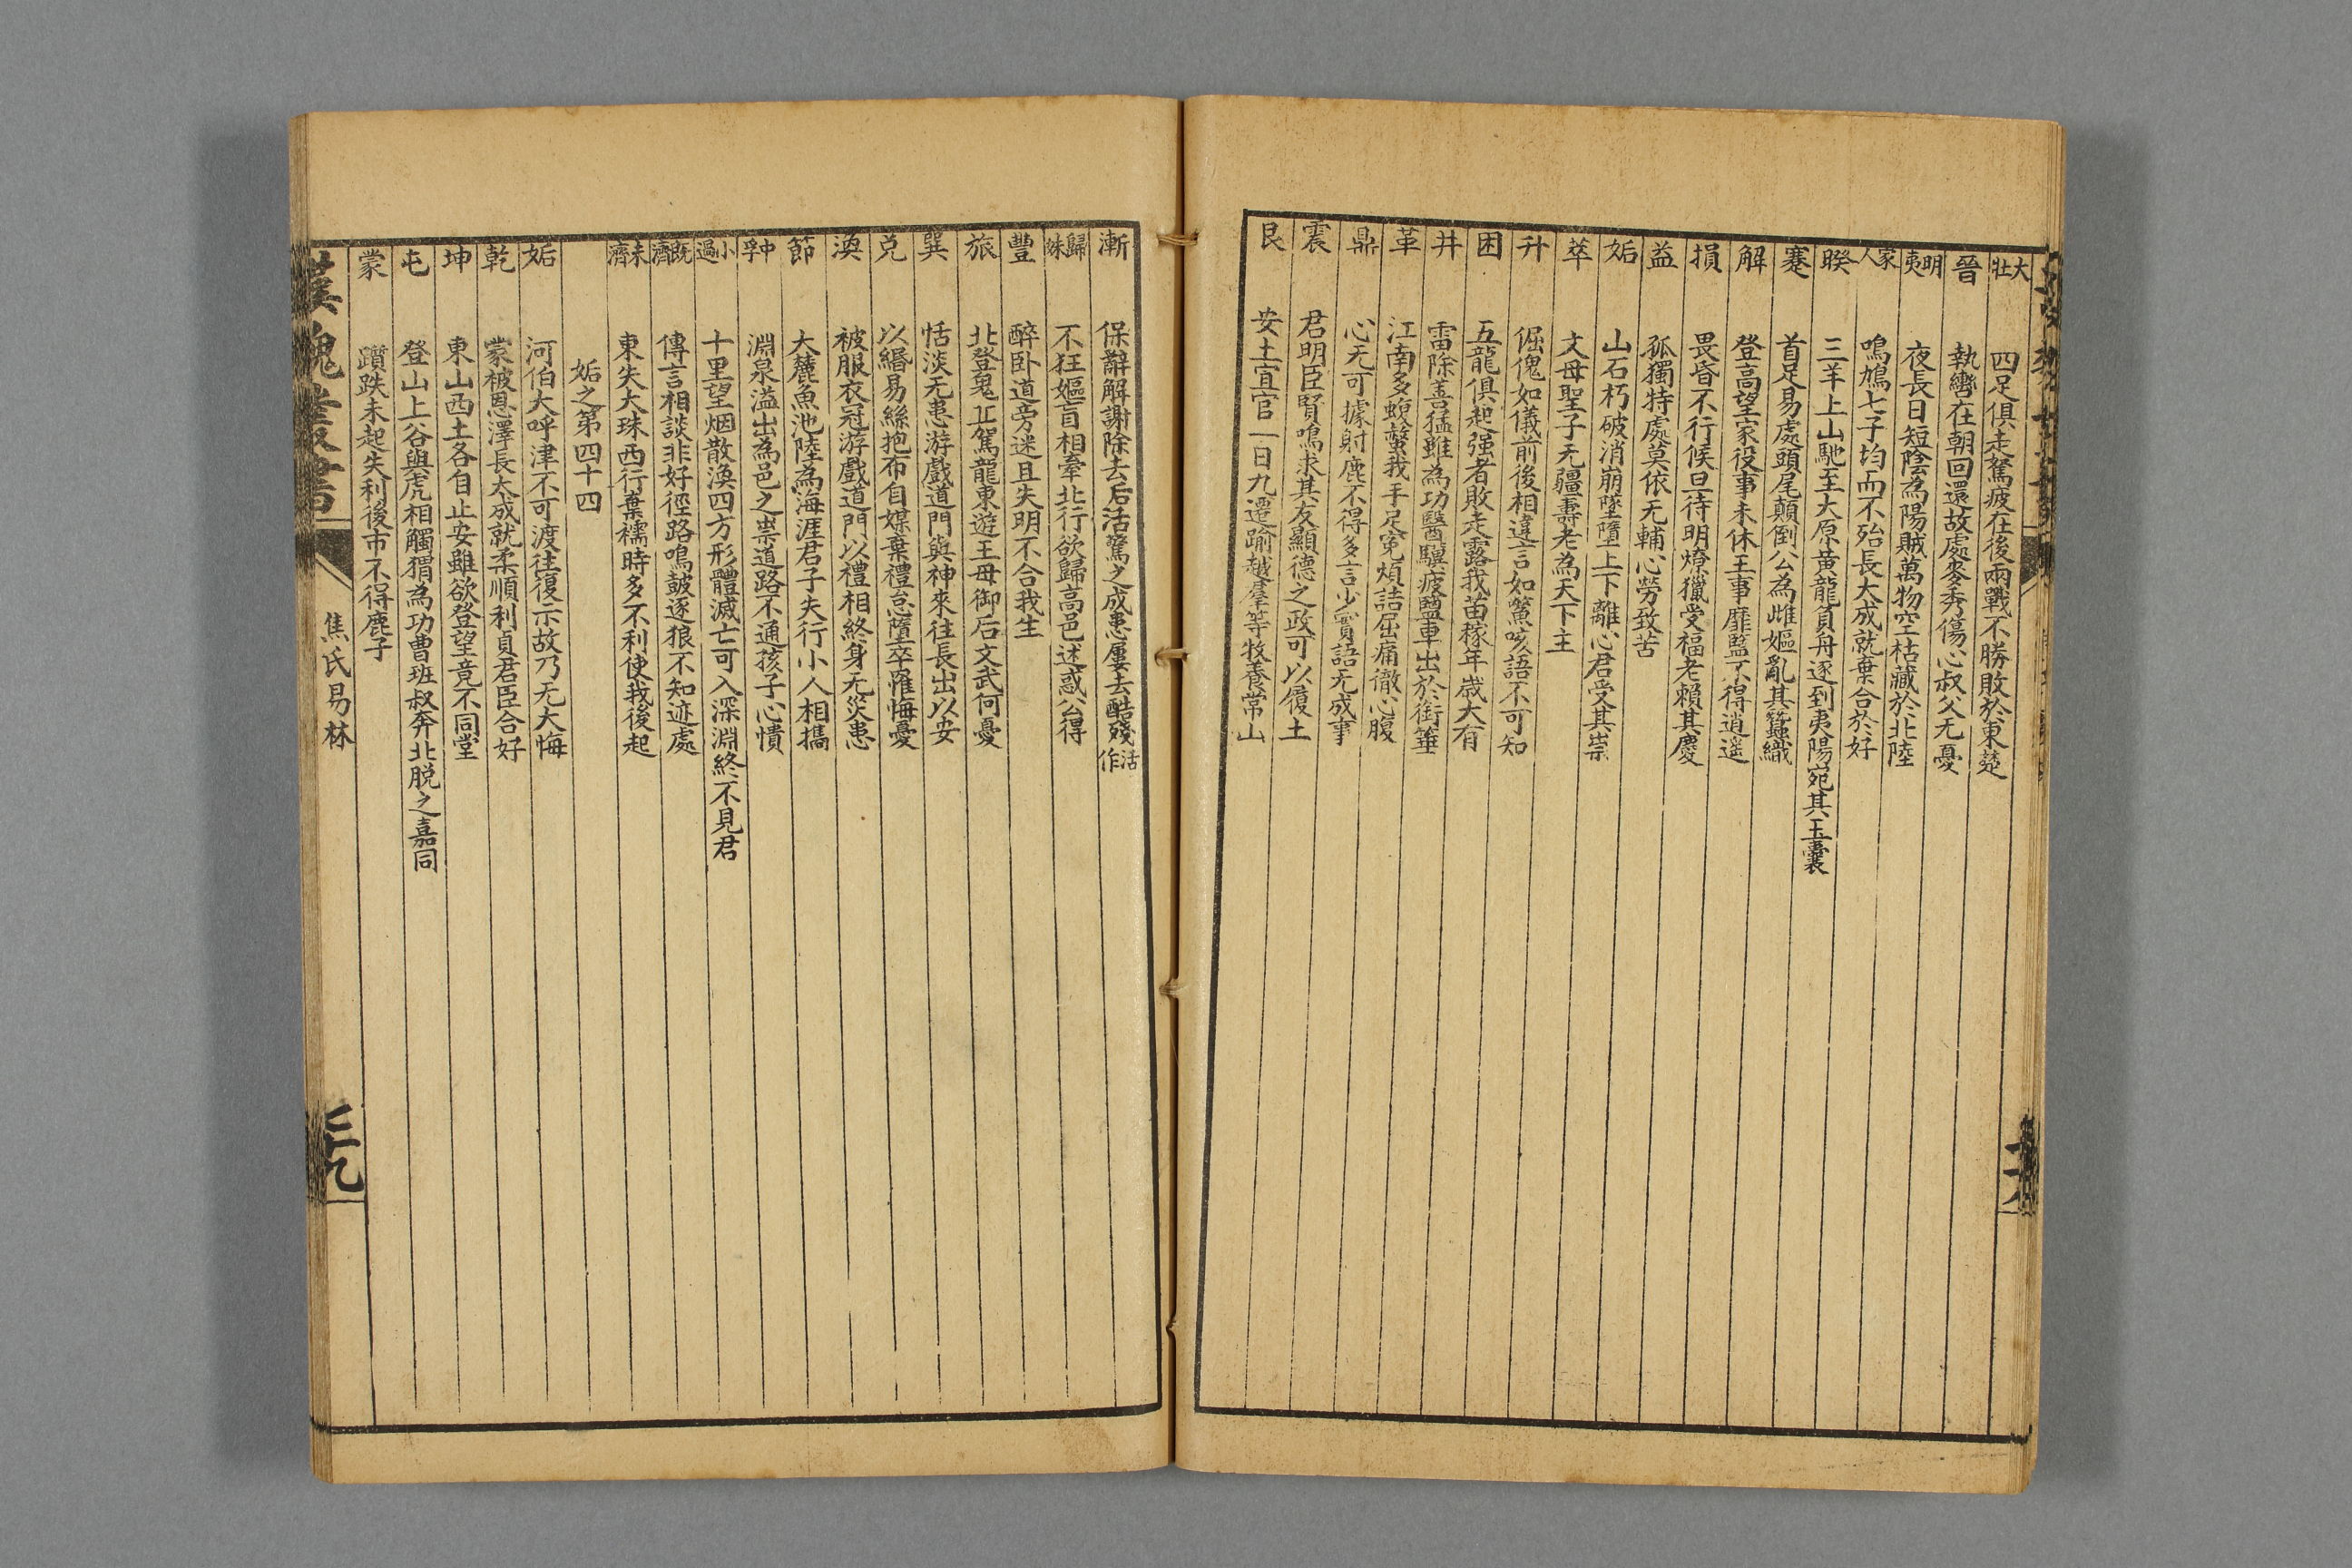 大壯 四足俱走駑疲在後兩戰不勝敗於東楚
晉 執轡在朝回還故處麥秀傷心叔父无憂
明夷 夜長日短陰為陽賊萬物空枯藏於北陸
家人 鳴鳩七子均而不殆長大成就棄合於好
睽 三羊上山馳至大原黃龍負舟逐到夷陽宛其玉囊
蹇 首足易處頭尾顛倒公為雌嫗亂其蠶織
解 登高望家役事未休王事靡盬不得逍遥
損 畏昏不行候旦待明燎獵受福老賴其慶
益 孤獨特處莫依无輔心勞致苦
姤 山石朽破消崩墜墮上下離心君受其祟
萃 文母聖子无疆壽老為天下主
升 倔傀如儀前後相違言如鱉咳語不可知
困 五龍俱起强者敗走露我苗稼年歲大有
井 雷除善猛雖為功醫驥疲鹽車出於銜箠
革 江南多蝮螫我手足寃煩詰屈痛徹心腹
鼎 心无可據射鹿不得多言少實語无成事
震 君明臣賢鳴求其友顯德之政可以履土
艮 安土宜官一日九遷踰越羣等牧養常山
漸 保辭解謝除去后活駕之成患屢去酷殘 活作
歸妹 不狂嫗盲相牽北行欲歸高邑述惑公得
豐 醉卧道旁迷且失明不合我生
旅 北登鬼丘駕龍東遊王母御后文武何憂
巽 恬淡无患游戲道門與神來往長出以安
兌 以緡易絲抱布自媒棄禮怠墮卒罹悔憂
渙 被服衣冠游戲道門以禮相終身无災患
節 大麓魚池陸為海涯君子失行小人相攜
中孚 淵泉溢出為邑之祟道路不通孩子心憒
小過 十里望烟散渙四方形體滅亡可入深淵終不見君
既濟 傳言相談非好徑路鳴鼓逐狼不知迹處
未濟 東失大珠西行棄襦時多不利使我後起
姤之第四十四
姤 河伯大呼津不可渡往復示故乃无大悔
乾 蒙被恩澤長大成就柔順利貞君臣合好
坤 東山西土各自止安雖欲登望竟不同堂
屯 登山上谷與虎相觸猬為功曹班叔奔北脱之嘉同
蒙 躓跌未起失利後市不得鹿子
焦氏易林
三九